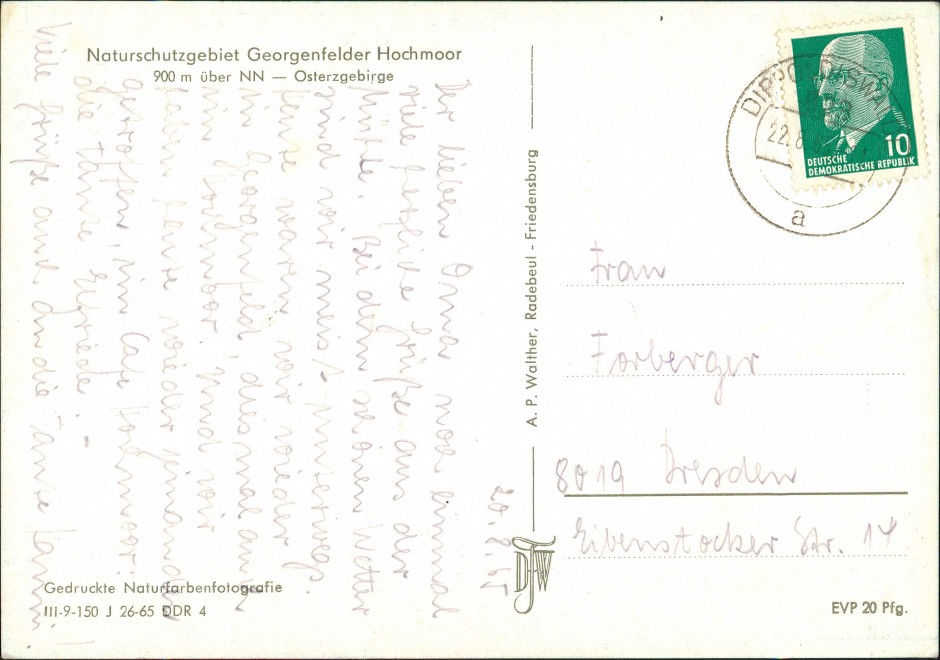 Naturschutzgebiet Georgenfelder Hochmoor
900 m über NN — Osterzgebirge
20.8.65
Der lieben Oma noch einmal
viele herzliche Grüße aus der
Hütte. Bei dem schönen Wetter
sind wir meist unterwegs.
Heute waren wir wieder
in Georgenfeld, diesmal auch
im Hochmoor. Und wir
haben heute wieder jemanden
getroffen, im Café Hochmoor:
die Tante Elfriede! -
Viele Grüße auch an die Tante
Gedruckte Naturfarbenfotografie
III-9-150 J 26-65 DDR 4
A. P. Walther, Radebeul - Friedensburg
DFW
DEUTSCHE
DEMOKRATISCHE REPUBLIK
10
22.8
a
Frau
Forberger
8019 Dresden
Eibenstocker Str. 14
EVP 20 Pfg.